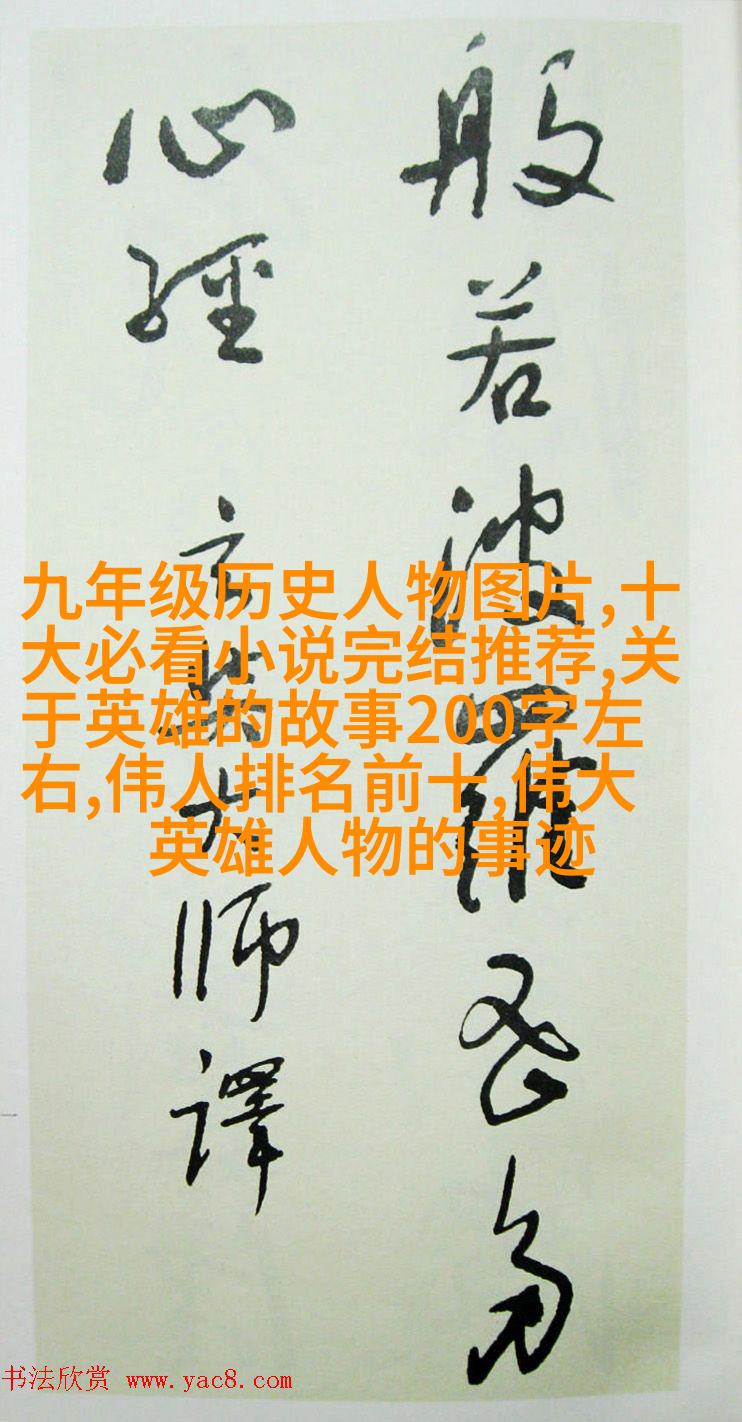 般若波羅蜜多
心經 玄奘大師譯
九年级历史人物图片,十
大必看小说完结推荐,关
于英雄的故事200字左
右,伟人排名前十,伟大
英雄人物的事迹
书法欣赏 www.yac8.com